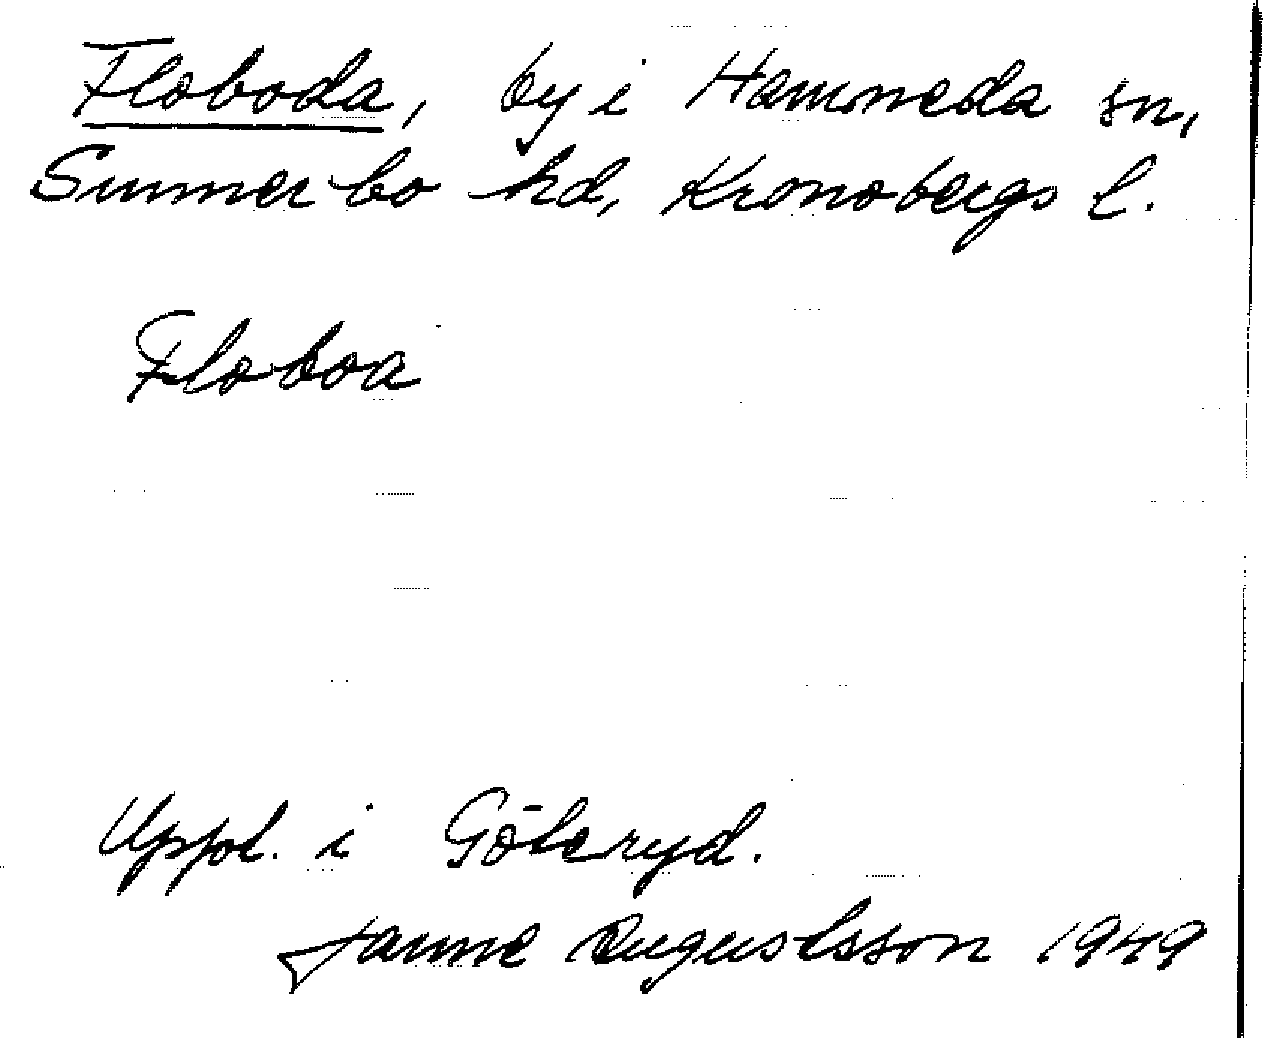 Floboda, by i Hamneda sn,
Sunnerbo hd, Kronobergs l.
Floboa
Uppt. i Göteryd.
Janne Augustsson 1949